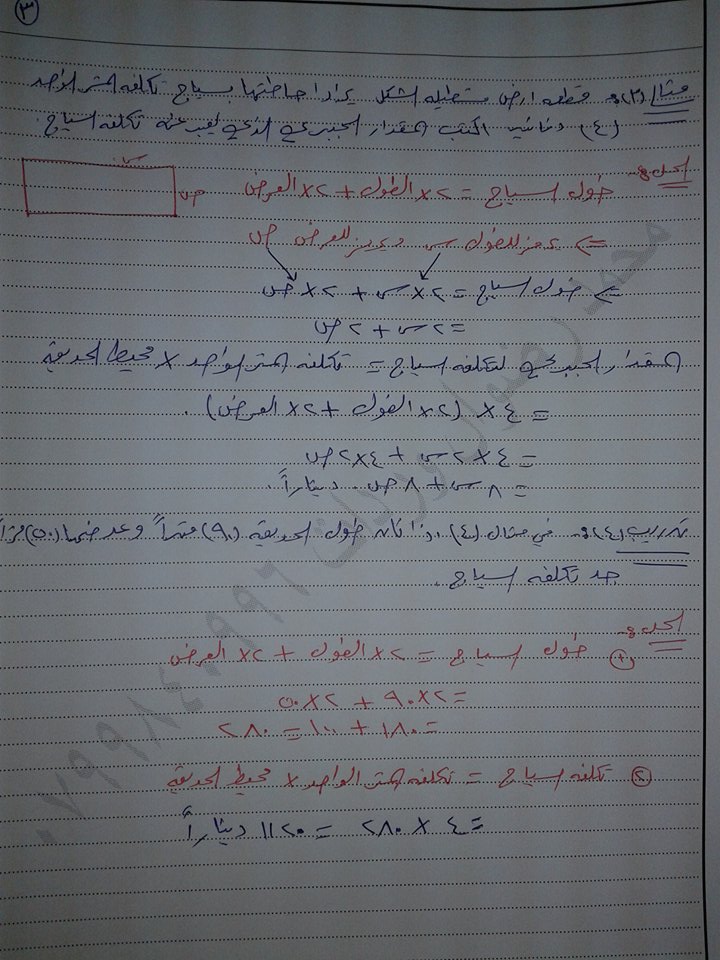 ٣
مثال (٣): قطعه ارض مستطيله الشكل يراد احاطتها بسياج تكلفه المتر الواحد
(٤) دنانير اكتب المقدار الجبري الذي يعبر عنه تكلفه السياج.
الحل:-
طول السياج = ٢× الطول + ٢× العرض
س
ص
=> نرمز للطول س ويرمز للعرض ص
=> طول السياج = ٢×س + ٢×ص
= ٢س + ٢ص
المقدار الجبري لتكلفه السياج = تكلفه المتر الواحد × محيط الحديقه
= ٤ × (٢× الطول + ٢× العرض).
= ٤×٢س + ٤×٢ص
= ٨س + ٨ص. ديناراً.
تدريب (٤): في مثال (٤) اذا كان طول الحديقه (٩٠) متراً وعرضها (٥٠) متراً
جد تكلفه السياج.
الحل:-
١) طول السياج = ٢× الطول + ٢× العرض
= ٢×٩٠ + ٢×٥٠
= ١٨٠ + ١٠٠ = ٢٨٠
٢) تكلفه السياج = تكلفه المتر الواحد × محيط الحديقه
= ٤ × ٢٨٠ = ١١٢٠ ديناراً
محمد رضوان وردات